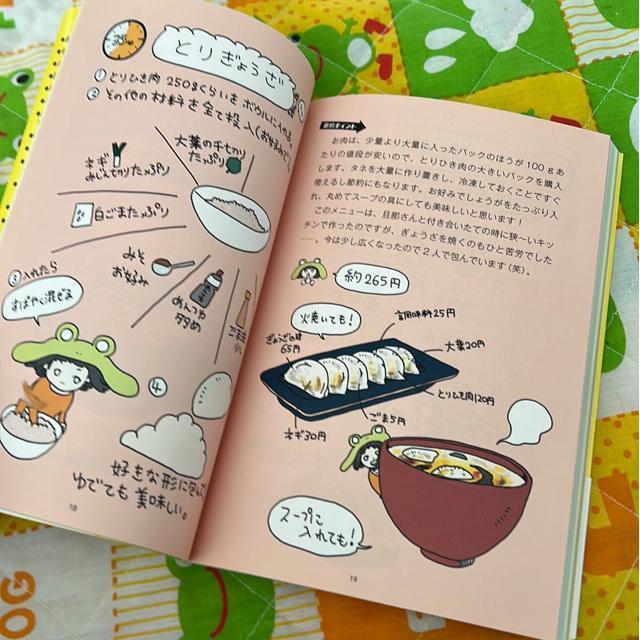 35分
とりぎょうざ
① とりひき肉 250gくらいをボウルに入れる。
② その他の材料を全て投入(お好みで)。
大葉の千切り
たっぷり
ネギ
みじん切りたっぷり
白ごまたっぷり
みそ
お好み
めんつゆ
多め
ごま油
少し
③ 入れたら
すばやく混ぜる
④
好きな形に包んで
ゆでても美味しい。
18
節約ポイント
お肉は、少量より大量に入ったパックのほうが100gあ
たりの値段が安いので、とりひき肉の大きいパックを購入
します。タネを大量に作り置きし、冷凍しておくことですぐ
使えるし節約にもなります。お好みでしょうがをたっぷり入
れ、丸めてスープの具にしても美味しいと思います!
このメニューは、旦那さんと付き合いたての時に狭〜いキッ
チンで作ったのですが、ぎょうざを焼くのもひと苦労でした
……。今は少し広くなったので2人で包んでいます(笑)。
約265円
火焼いても!
調味料25円
ぎょうざの皮
65円
大葉20円
とりひき肉120円
ごま5円
ネギ30円
スープに
入れても!
19
OG